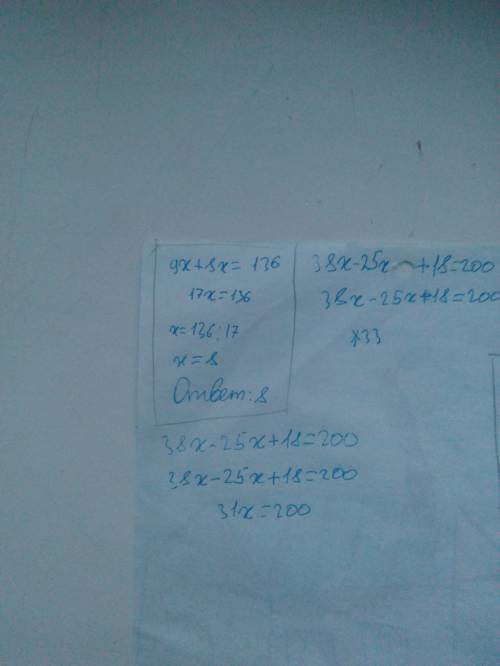 9x+8x=136
17x=136
x=136:17
x=8
Ответ: 8
38x-25x +18=200
38x-25x+18=200
38x-25x+18=200
38x-25x+18=200
31x=200